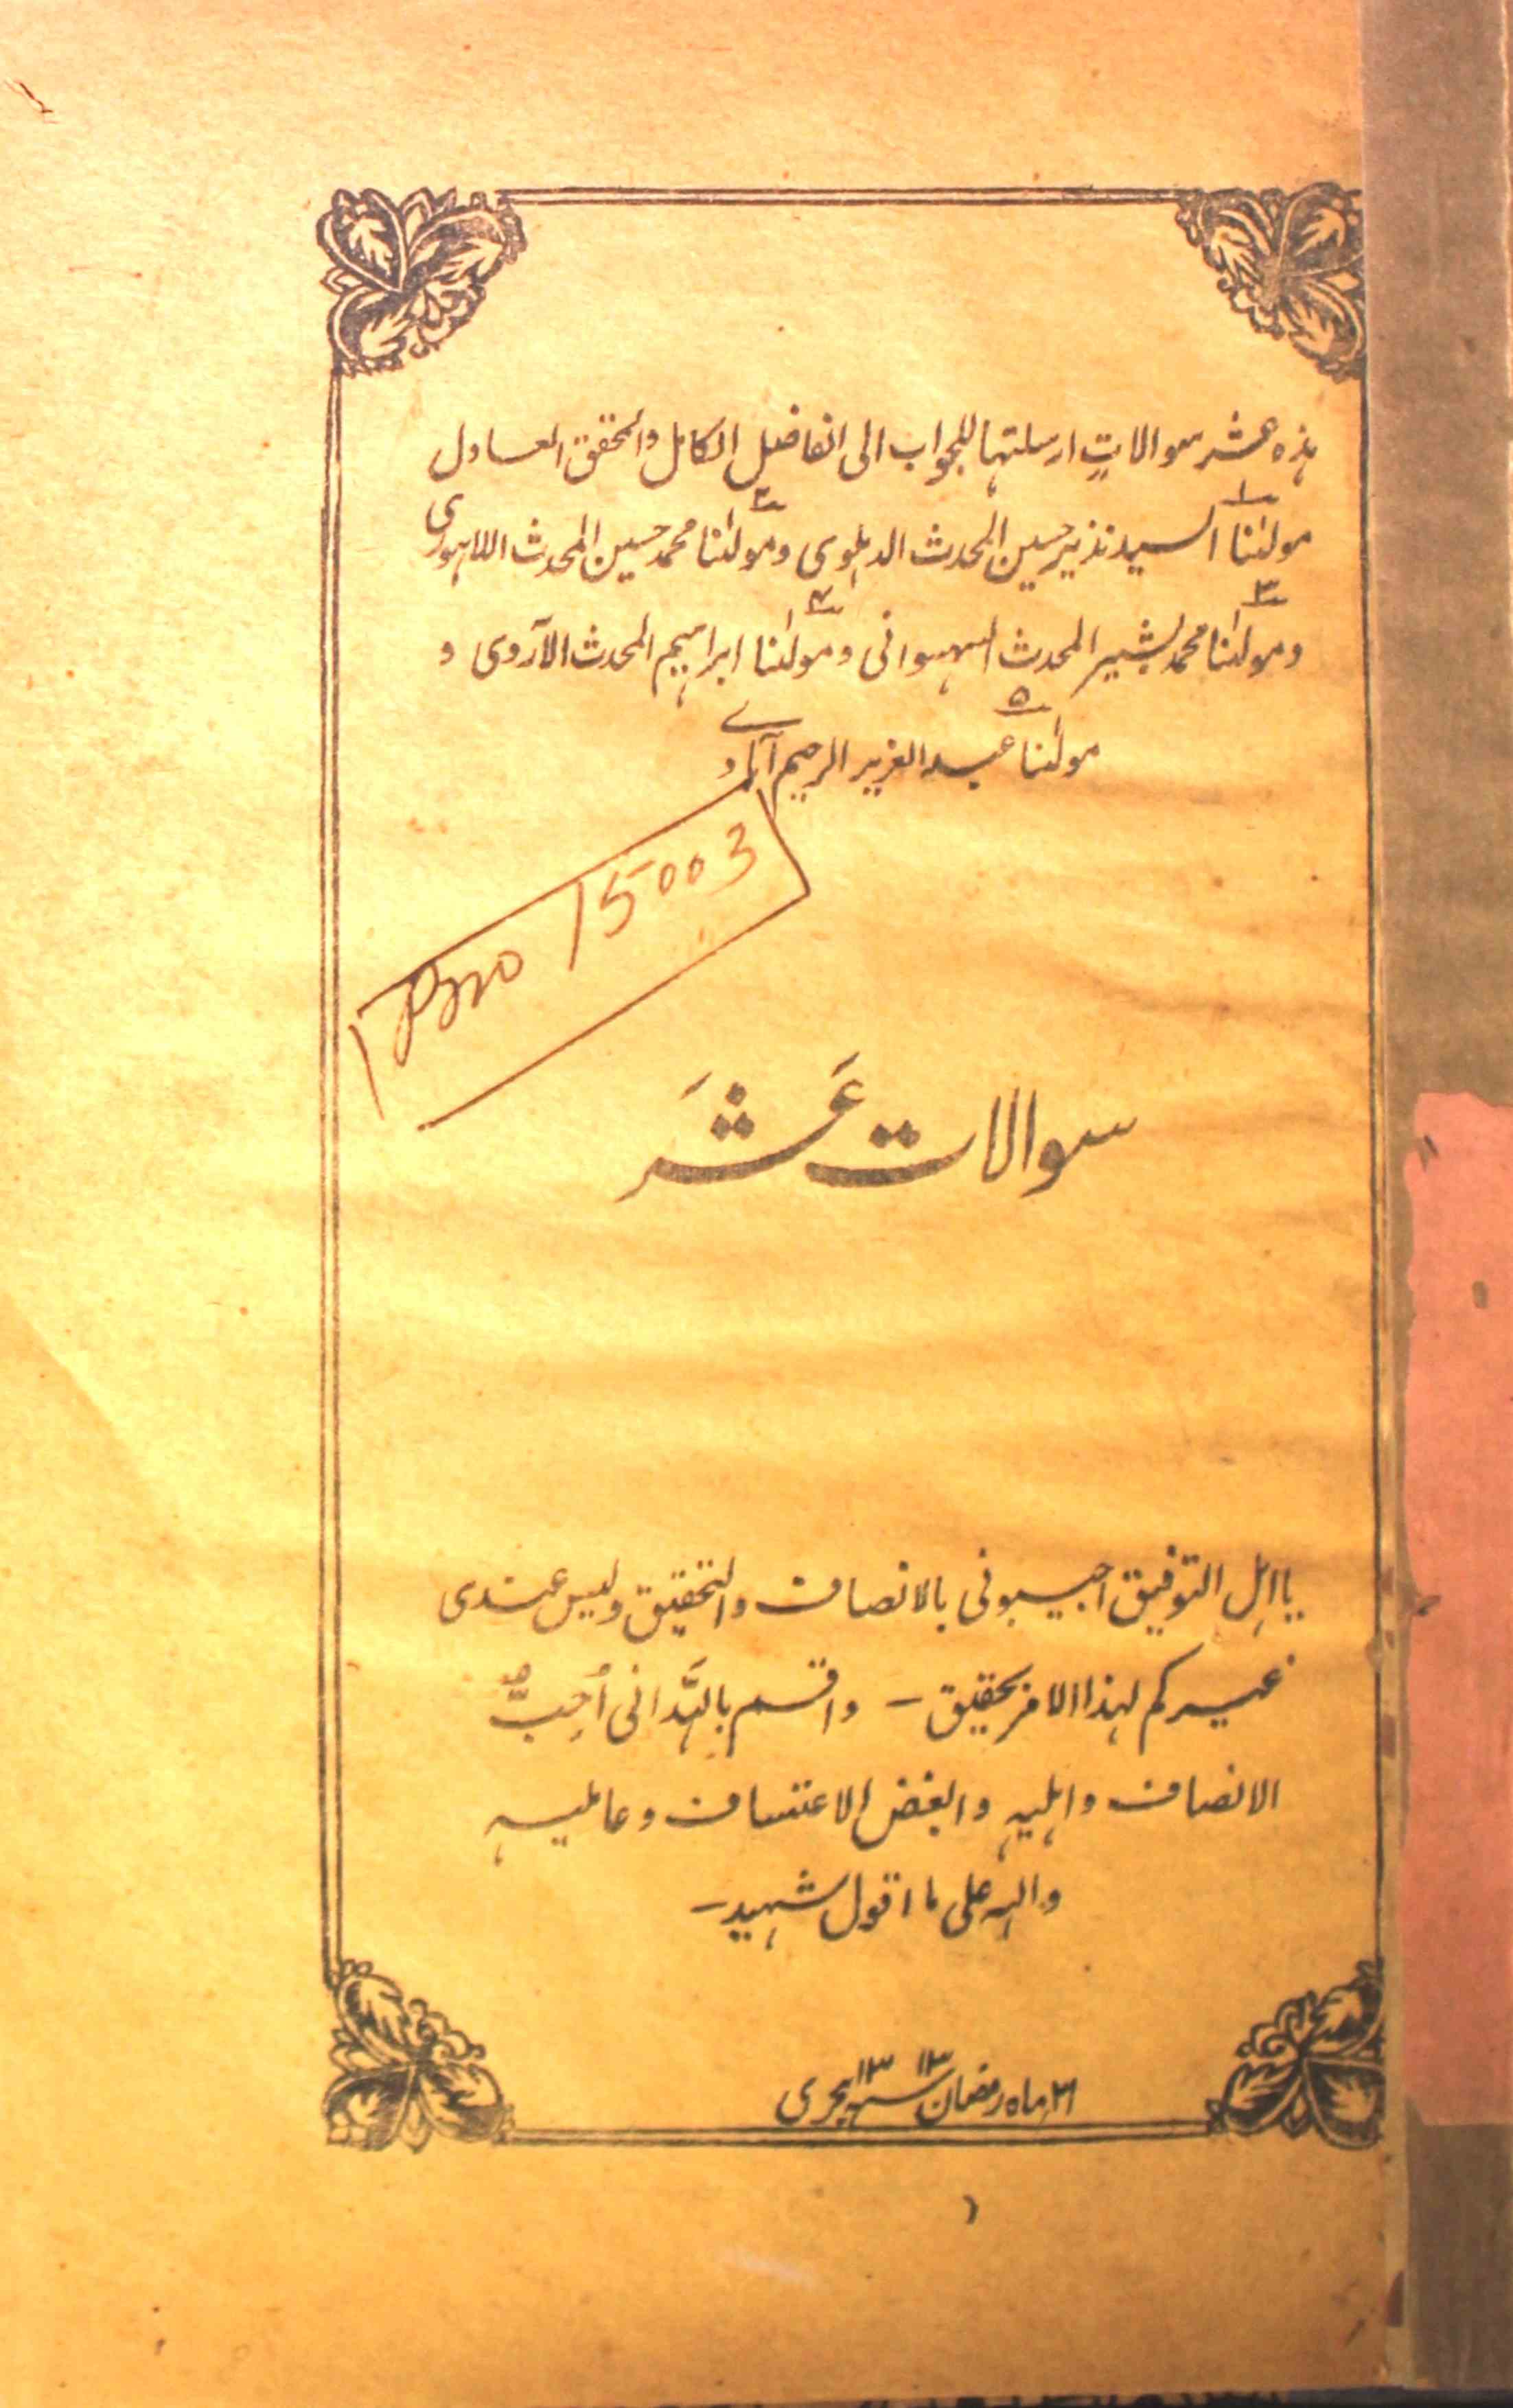 ہذہ عشر سوالاتٍ ارسلتہا للجواب الی الفاضل الکامل والمحقق العادل
۱ ۲
مولٰنا السید نذیر حسین المحدث الدہلوی ومولٰنا محمد حسین المحدث اللاہوری
۳ ۴
ومولٰنا محمد بشیر المحدث السہسوانی ومولٰنا ابراہیم المحدث الآروی و
۵
مولٰنا عبدالعزیز الرحیم آبادی
15003
سوالات عَشَر
یا اہل التوفیق اجیبونی بالانصاف والتحقیق ولیس عندی
غیرکم لہذا الامر بحقیق – واقسم باللہ انی اُحِبُّ
الانصاف واہلیہ وابغض الاعتساف وعاملیہ
واللہ علی ما اقول شہید–
۲۱ ماہ رمضان ۱۳۱۳ سنہ ہجری